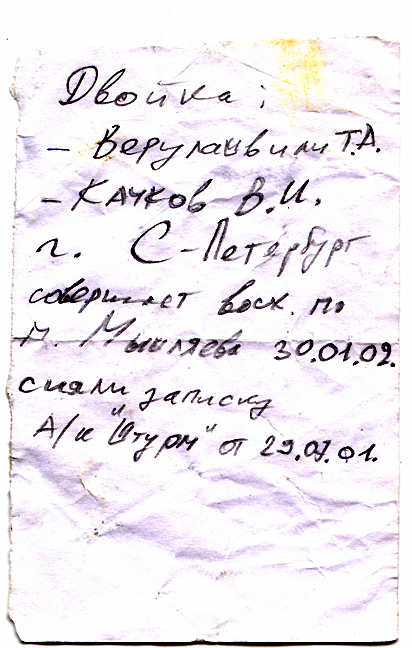 Двойка:
- Верулашвили Т.А.
- Качков В.И.
г. С-Петербург
совершает восх. по
м. Мышляева 30.01.02.
сняли записку
А/к "Штурм" от 29.07.01.